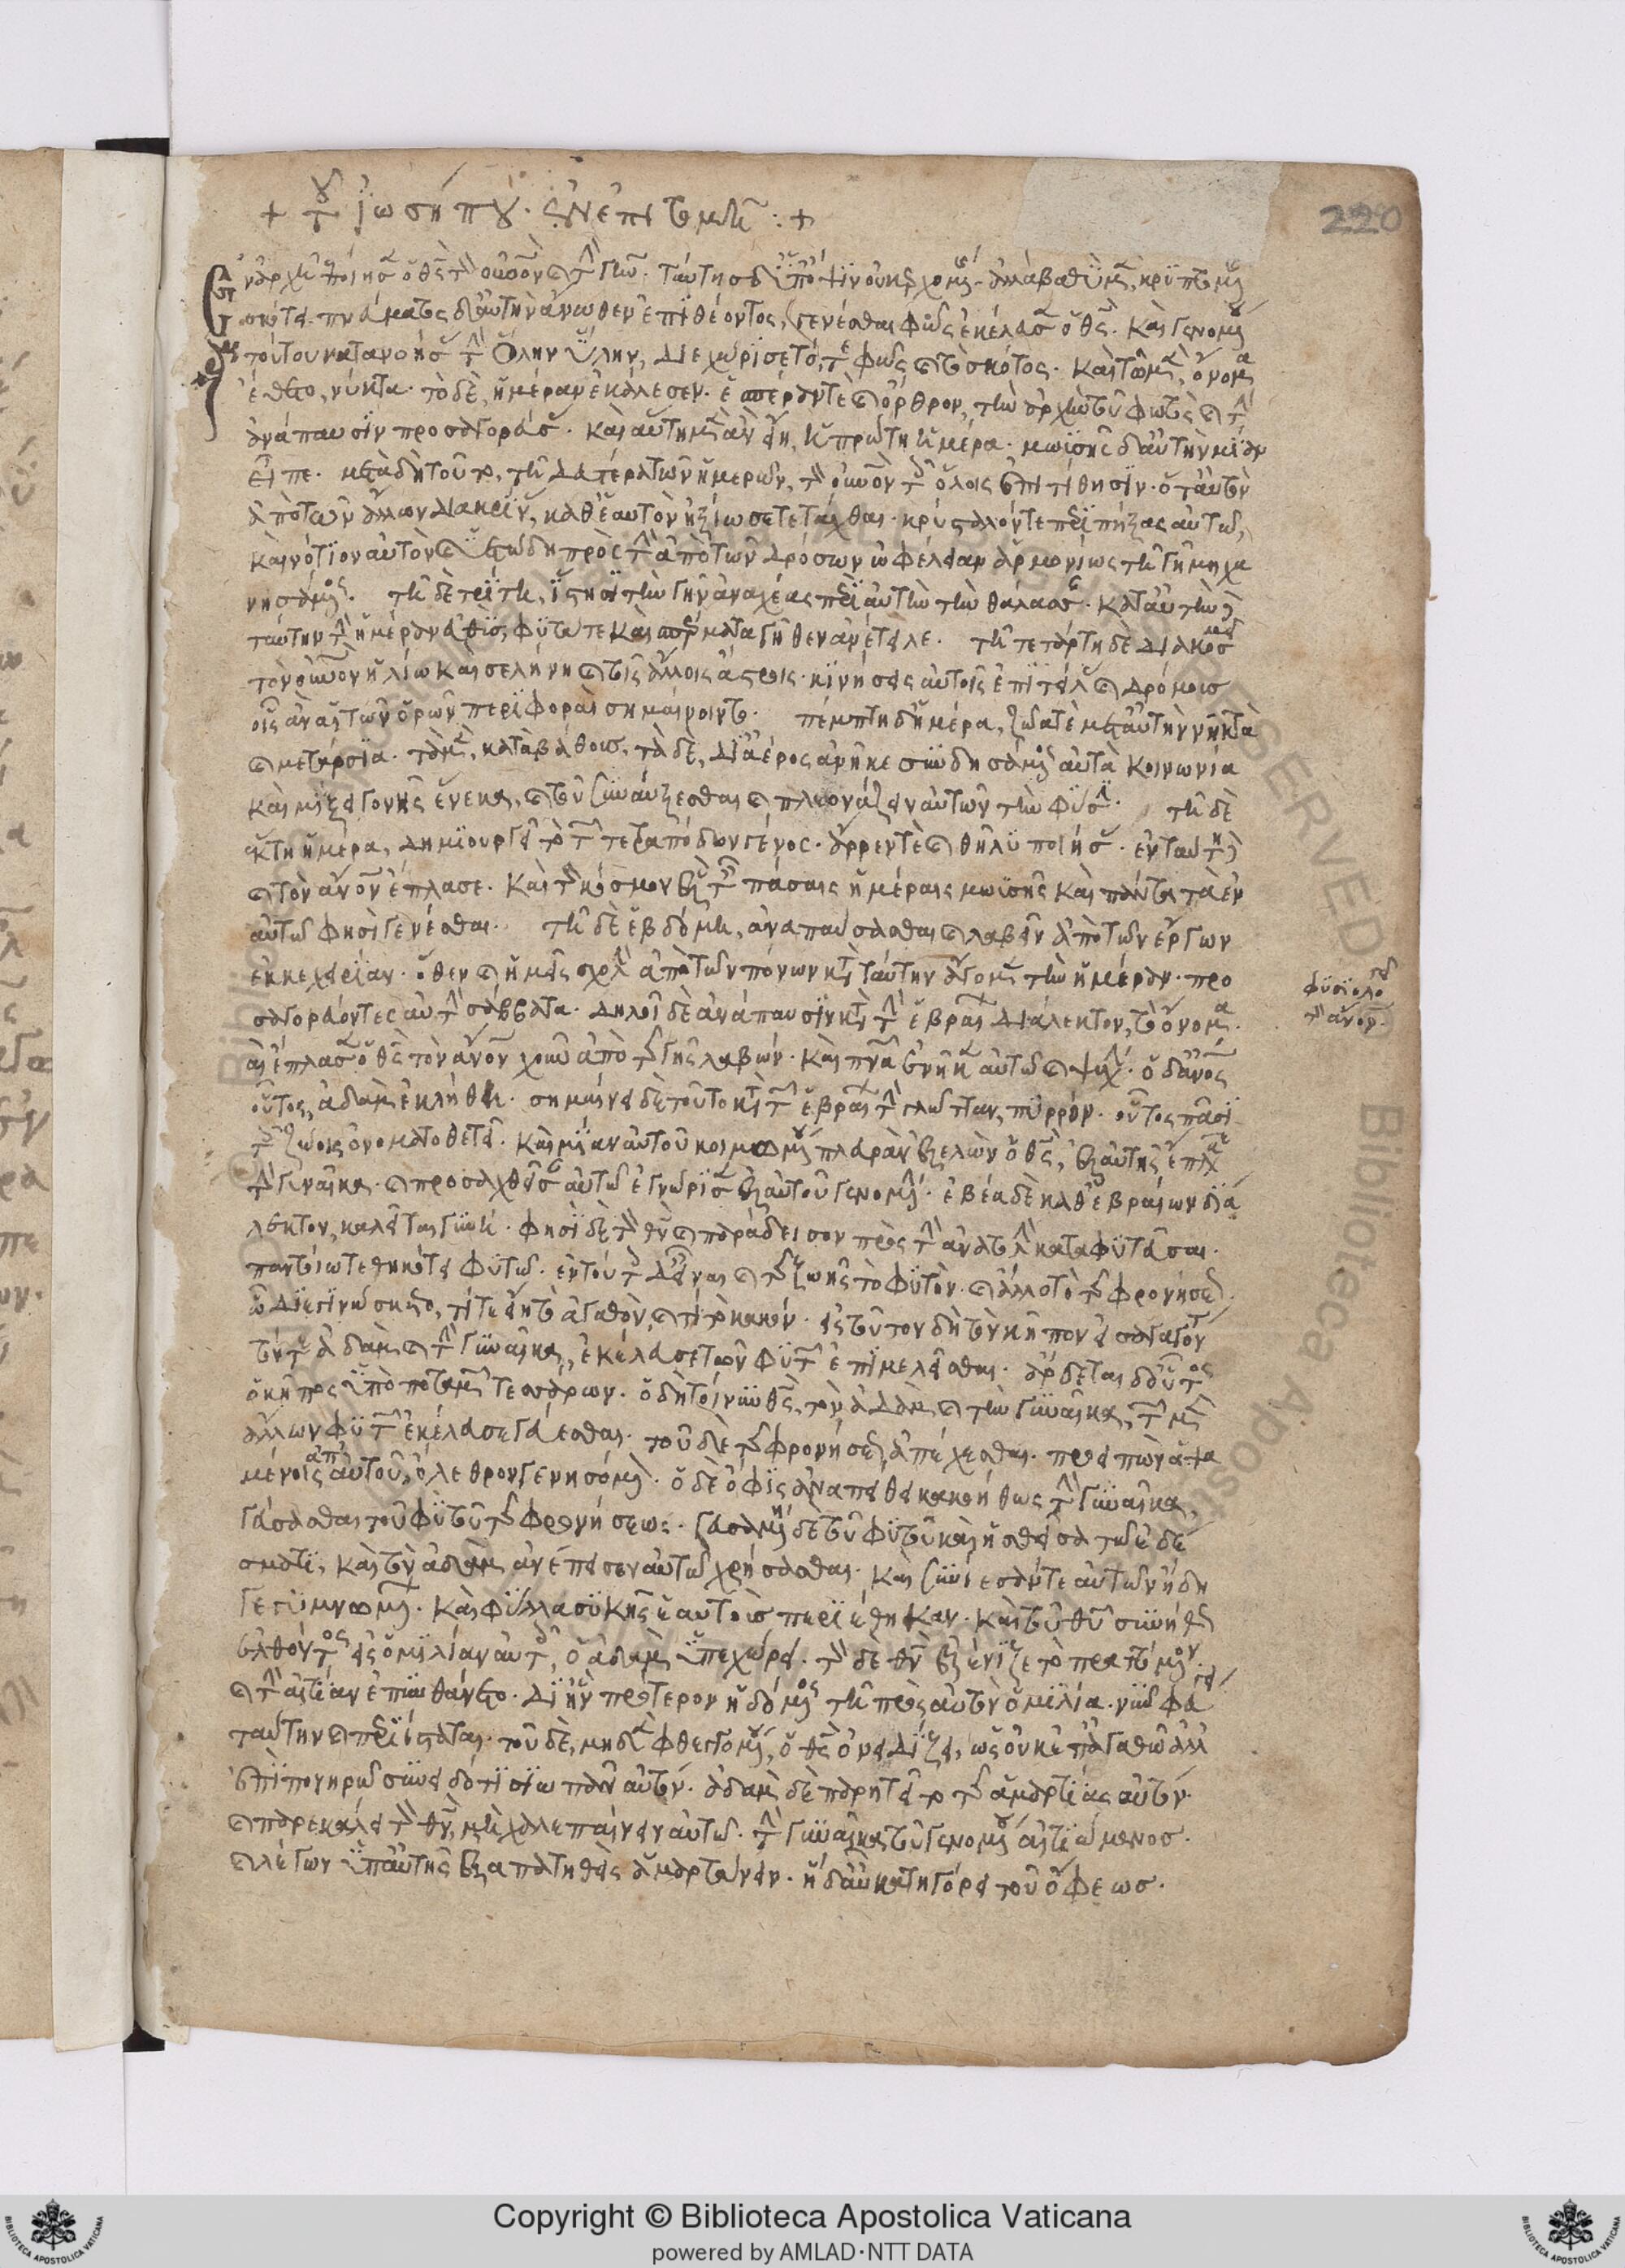 220
+ τοῦ ἰωσήπου· ἐν ἐπιτομῆ :+
ἐν ἀρχῆ ἐποίησεν ὁ θεὸς τὸν οὐρανὸν καὶ τὴν γῆν· ταύτης δ' ὑπ' ὄψιν οὐκ ἐρχομένης· ἀλλὰ βαθεῖ μὲν, κρυπτομένης
σκότει· πνεύματος δ' αὐτὴν ἄνωθεν ἐπιθέοντος, γενέσθαι φῶς ἐκέλευσεν ὁ θεός· καὶ γενομένου
τούτου κατανοήσας τὴν ὅλην ὕλην, διεχώρισε τό, τε φῶς καὶ τὸ σκότος· καὶ τῶ μὲν, ὄνομα
ἔθετο, νύκτα· τὸ δὲ, ἡμέραν ἐκάλεσεν· ἑσπέραν τὲ καὶ ὄρθρον, τὴν ἀρχὴν τοῦ φωτὸς καὶ τὴν
ἀνάπαυσιν προσαγορεύσας· καὶ αὕτη μὲν ἂν εἴη, ἡ πρώτη ἡμέρα· μωϋσῆς δ' αὐτὴν μίαν
εἶπε· μετὰ δὴ τοῦτο, τῆ δευτέρα τῶν ἡμερῶν, τὸν οὐρανὸν τοῖς ὅλοις ἐπιτίθησιν· ὅτ' αὐτὸν
ἀπὸ τῶν ἄλλων διακρίνας, καθ' ἑαυτὸν ἠξίωσε τετάχθαι· κρύσταλόν τε περιπήξας αὐτῶ,
καὶ νότιον αὐτὸν καὶ ὑετώδη πρὸς τὴν ἀπὸ τῶν δρόσων ὠφέλειαν ἁρμονίως τῆ γῆ μηχα
νησάμενος. τῆ δὲ τρίτη, ἵστησι τὴν γῆν ἀναχέας περὶ αὐτὴν τὴν θάλασσαν· κατ' αὐτὴν δὲ
ταύτην τὴν ἡμέραν εὐθὺς φυτά τε καὶ σπέρματα γῆθεν ἀνέτειλε· τῆ τετάρτη δὲ διακοσμεῖ
τὸν οὐρανὸν ἡλίω καὶ σελήνη καὶ τοῖς ἄλλοις ἄστροις· κινήσεις αὐτοῖς ἐπιτείλας καὶ δρόμοις
οἷς ἂν αἱ τῶν ὡρῶν περιφοραὶ σημαίνοιντο· πέμπτη δ' ἡμέρα, ζῶά τὲ μετ' αὐτὴν νηκτὰ
καὶ μετάρσια· τὰ μὲν, κατὰ βάθους, τὰ δὲ, δι' ἀέρος ἀνῆκε συνδησάμενος αὐτὰ κοινωνία
καὶ μίξει γονῆς ἕνεκα, καὶ τοῦ συναύξεσθαι καὶ πλεονάζειν αὐτῶν τὴν φύσιν· τῆ δὲ
ἕκτη ἡμέρα, δημιουργεῖ τὸ τῶν τετραπόδων γένος· ἄρρεν τὲ καὶ θῆλυ ποιήσας· ἐν ταύτη δὲ
καὶ τὸν ἄνθρωπον ἔπλασε· καὶ τὸν κόσμον ἓξ ταῖς πάσαις ἡμέραις μωϋσῆς καὶ πάντα τὰ ἐν
αὐτῶ φησὶ γενέσθαι· τῆ δὲ ἑβδόμη, ἀναπαύσασθαι καὶ λαβεῖν ἀπὸ τῶν ἔργων
ἐκεχειρίαν· ὅθεν καὶ ἡμεῖς σχολὴν ἀπὸ τῶν πόνων κατὰ ταύτην ἄγομεν τὴν ἡμέραν· προ
σαγορεύοντες αὐτὴν σάββατα· δηλοῖ δὲ ἀνάπαυσιν κατὰ τὴν ἑβραίων διάλεκτον, τὸ ὄνομα·
φυσιολογεῖ
τὸν ἄνθρωπον·
ἔπλασεν ὁ θεὸς τὸν ἄνθρωπον χοῦν ἀπὸ τῆς γῆς λαβών· καὶ πνεῦμα ἐνῆκεν αὐτῶ καὶ ψυχήν· ὁ δ' ἄνθρωπος
οὗτος, ἀδὰμ ἐκλήθη· σημαίνει δὲ τοῦτο κατὰ τῶν ἑβραίων τὴν γλῶτταν, πυρρόν· οὗτος πᾶσι
τοῖς ζώοις ὀνοματοθετεῖ· καὶ μίαν αὐτοῦ κοιμωμένου πλευρὰν ἐξελὼν ὁ θεός, ἐξ αὐτῆς ἔπλασε
τὴν γυναῖκα· καὶ προσαχθεῖσαν αὐτῶ ἐγνώρισεν ἐξ αὐτοῦ γενομένην· ἐβέα δὲ καθ' ἑβραίων διά
λεκτον, καλεῖται γυνή· φησὶ δὲ τὸν θεὸν καὶ παράδεισον πρὸς τὴν ἀνατολὴν καταφυτεῦσαι·
παντοίω τεθηκότα φυτῶ· ἐν τούτοις δ' εἶναι καὶ τῆς ζωῆς τὸ φυτὸν· καὶ ἄλλο τὸ τῆς φρονήσεως·
ὧ διεγινώσκετο, τί τε εἴη τὸ ἀγαθὸν, καὶ τί τὸ κακόν· εἰς τοῦτον δὴ τὸν κῆπον εἰσαγαγόντα
τόν τε ἀδὰμ καὶ τὴν γυναῖκα, ἐκέλευσε τῶν φυτῶν ἐπιμελεῖσθαι· ἄρδεται δ' οὗτος
ὁ κῆπος ὑπὸ ποταμῶν τεσσάρων· ὁ δὴ τοίνυν θεὸς, τὸν ἀδὰμ καὶ τὴν γυναῖκα, τῶν μὲν
ἄλλων φυτῶν ἐκέλευσε γεύεσθαι· τοῦ δὲ τῆς φρονήσεως, ἀπέχεσθαι· προειπὼν ἁψα
μένοις ἀπ' αὐτοῦ, ὄλεθρον γενησόμενον· ὁ δὲ ὄφις ἀναπείθει κακοήθως τὴν γυναῖκα,
γεύσασθαι τοῦ φυτοῦ τῆς φρονήσεως· γευσαμένη δὲ τοῦ φυτοῦ καὶ ἡσθεῖσα τῶ ἐδέ
σματι, καὶ τὸν ἀδὰμ ἀνέπεισεν αὐτῶ χρήσασθαι· καὶ συνίεσάν τε αὐτῶν ἤδη
γεγυμνωμένων· καὶ φύλλα συκῆς ἑαυτοῖς περιέθηκαν· καὶ τοῦ θεοῦ συνήθως
ἐλθόντος εἰς ὁμιλίαν αὐτοῖς, ὁ ἀδὰμ ὑπεχώρει· τὸν δὲ θεὸν ἐξένιζε τὸ πραττόμενον·
καὶ τὴν αἰτίαν ἐπυνθάνετο· δι' ἣν πρότερον ἡδόμενος τῆ πρὸς αὐτὸν ὁμιλία· νῦν φεύγει
ταύτην καὶ περιίσταται· τοῦ δὲ, μηδὲν φθεγγομένου, ὁ θεὸς ὀνειδίζει, ὡς οὐκ ἐπ' ἀγαθῶ ἀλλ'
ἐπὶ πονηρῶ συνειδότι σιωπᾶν αὐτόν· ἀδὰμ δὲ παρητεῖτο τῆς ἁμαρτίας αὐτόν·
καὶ παρεκάλει τὸν θεὸν, μὴ χαλεπαίνειν αὐτῶ· τὴν γυναῖκα τοῦ γενομένου αἰτιώμενος·
καὶ λέγων ὑπ' αὐτῆς ἐξαπατηθεὶς ἁμαρτάνειν· ἡ δ' αὖ κατηγόρει τοῦ ὄφεως·
Copyright © Biblioteca Apostolica Vaticana
powered by AMLAD·NTT DATA